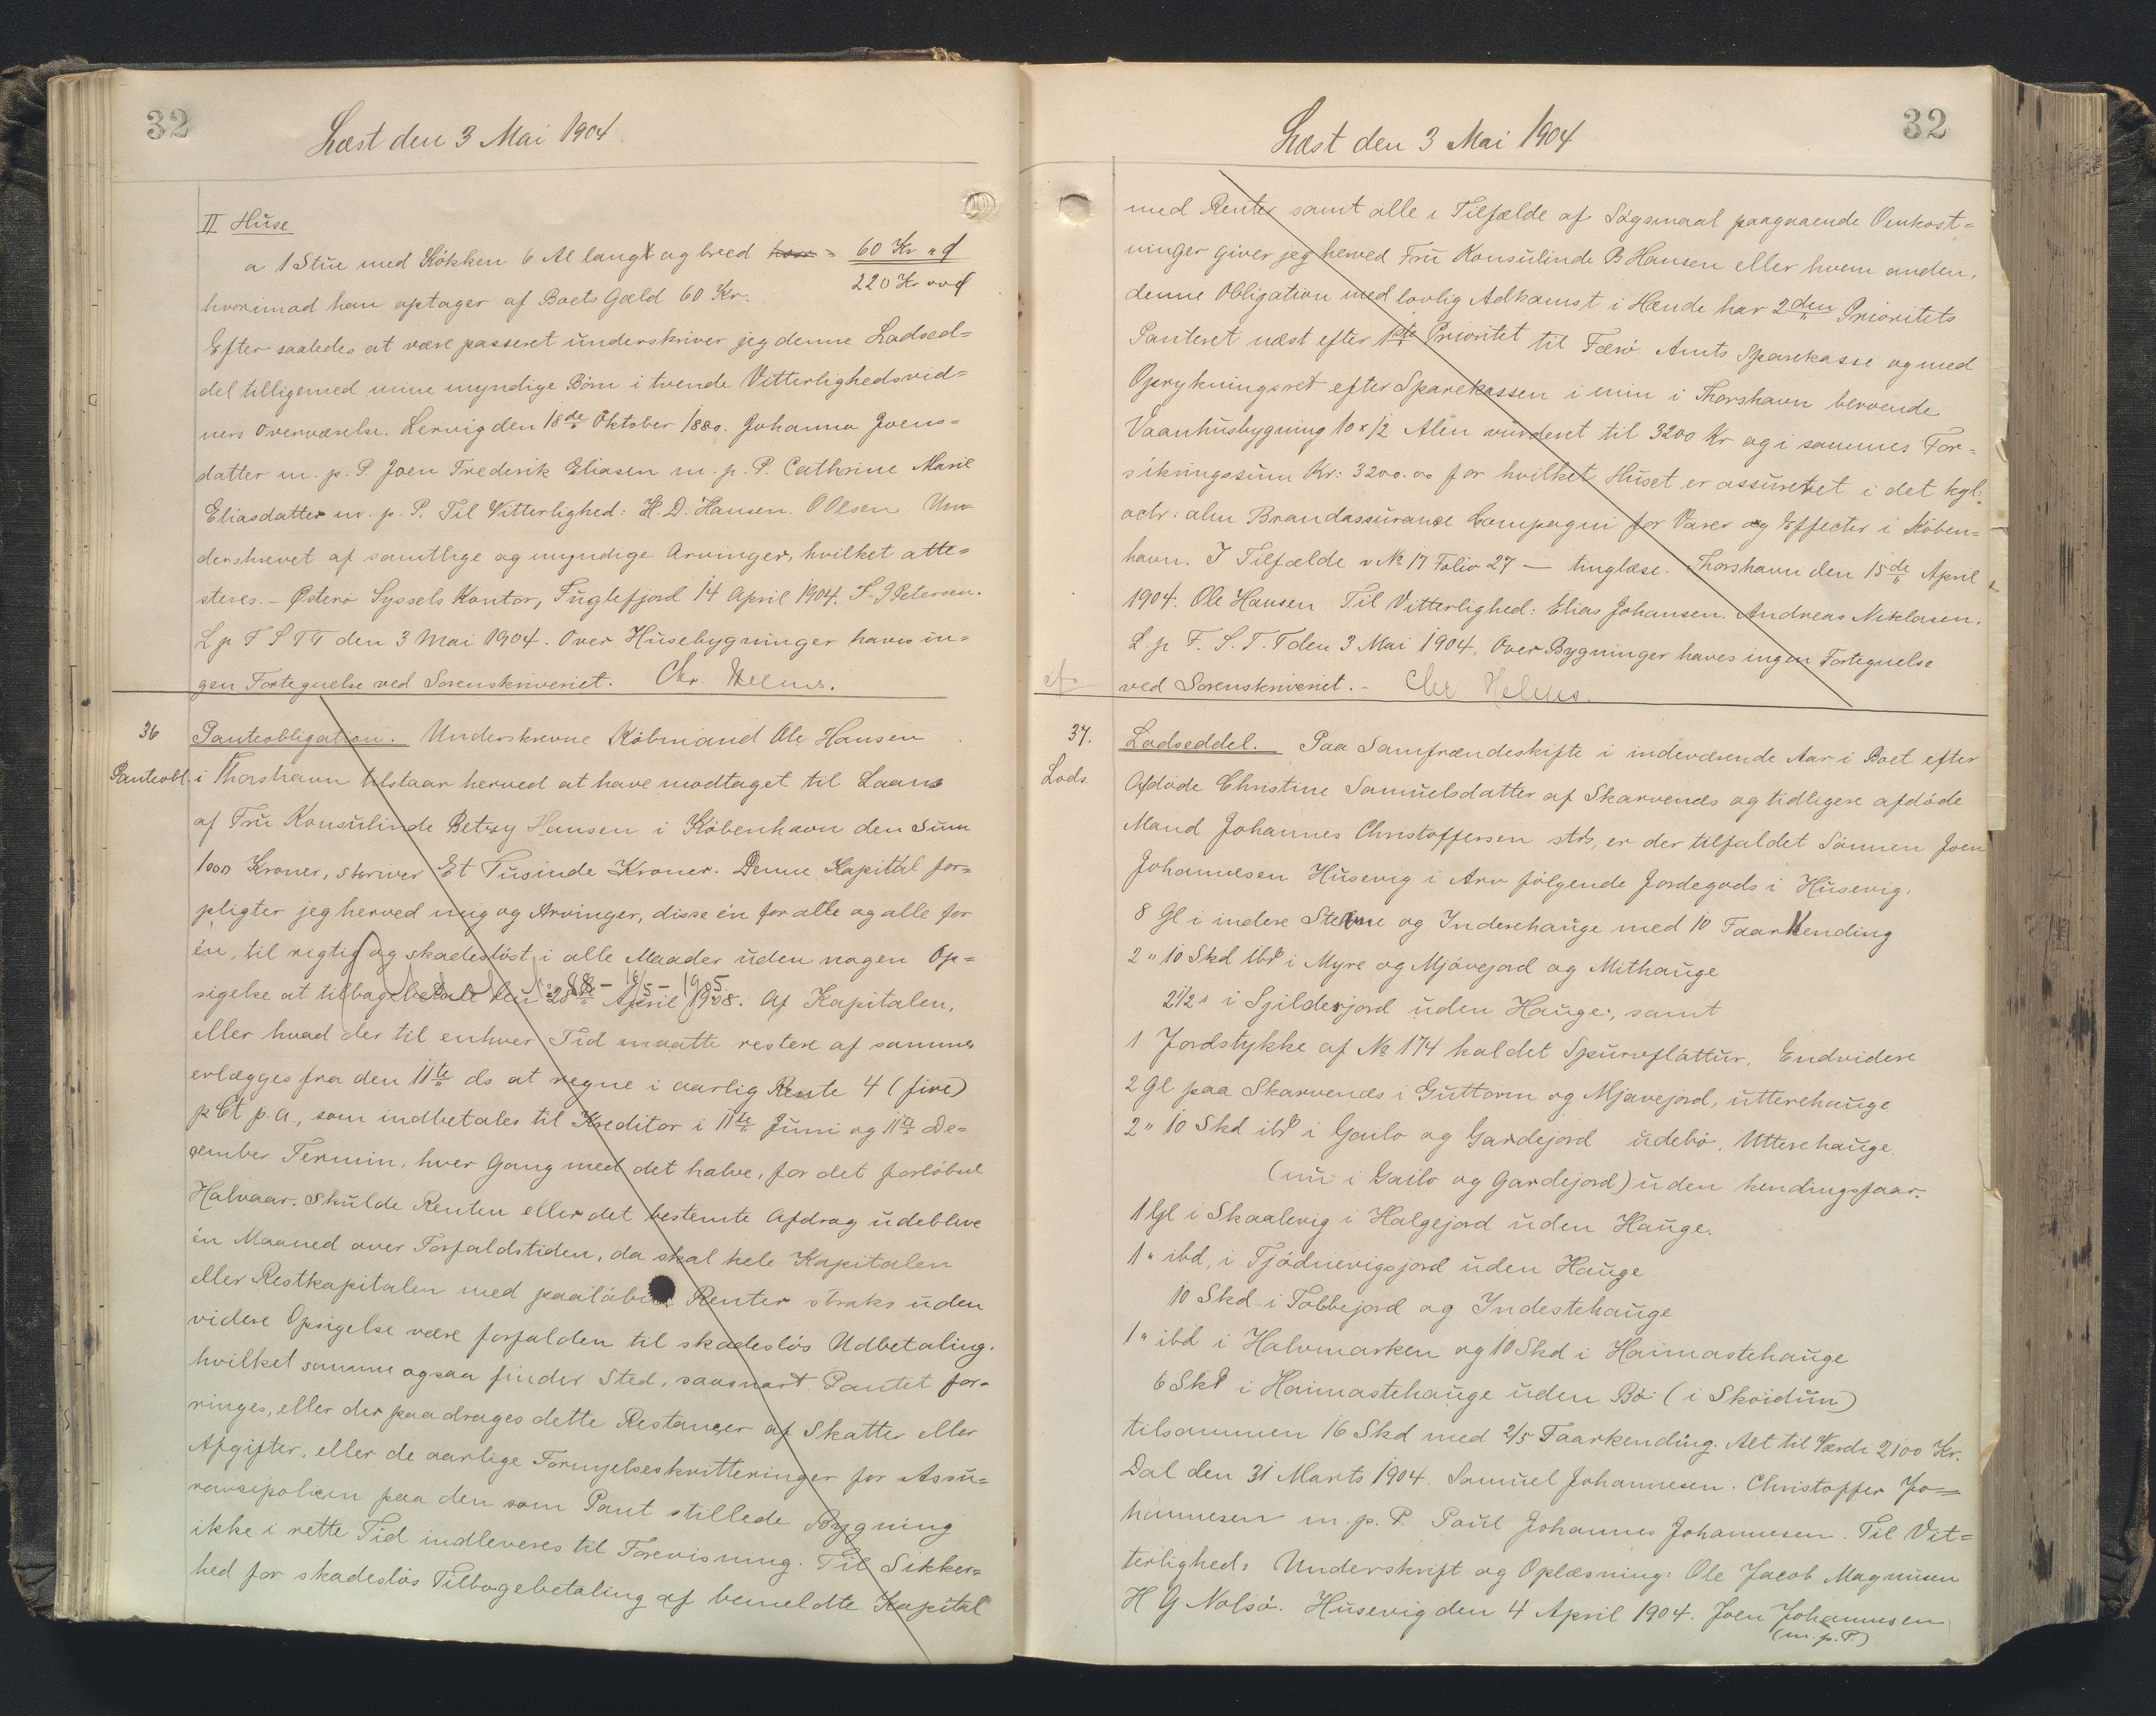 32
Læst den 3 Mai 1904.
II Huse
a 1 Stue med Kökken 6 Al langt og bred = 60 Kr "
hvorimod han optager af Boets Gæld 60 Kr. 220 Kr
Efter saaledes at være passeret underskriver jeg denne Lodsed=
del tilligemed mine myndige Börn i tvende Vitterlighedsvid=
ners Overværelse. Lervig den 18de Oktober 1880. Johanna Joens=
datter m. p. P. Joen Frederik Eliasen m. p. P. Cathrine Marie
Eliasdatter m. p. P. Til Vitterlighed: H. D. Hansen. O Olsen Un=
derskrevet af samtlige og myndige Arvinger, hvilket atte=
steres. - Østerø Syssels Kontor, Fuglefjord 14 April 1904. F. J Petersen.
L p F S T T den 3 Mai 1904. Over Husebygninger haves in=
gen Fortegnelse ved Sorenskriveriet. Chr. Helms.
36 Panteobligation. Underskrevne Köbmand Ole Hansen
Panteobl. i Thorshavn tilstaar herved at have modtaget til Laans
af Fru Konsulinde Betsy Hansen i Köbenhavn den Sum
1000 Kroner, skriver Et Tusinde Kroner. Denne Kapittal for=
pligter jeg herved mig og Arvinger, disse én for alle og alle for
én, til rigtig og skadeslöst i alle Maader uden nogen Op=
88 - 16/5 - 1905
sigelse at tilbagebetale den 28de April 1908. Af Kapitalen,
eller hvad der til enhver Tid maatte restere af samme,
erlægges fra den 11te ds at regne i aarlig Rente 4 (fire)
p Ct p. a., som indbetales til Kreditor i 11te Juni og 11te De=
cember Termin, hver Gang med det halve, for det forlöbne
Halvaar. Skulde Renten eller det bestemte Afdrag udeblive
én Maaned over Forfaldstiden, da skal hele Kapitalen
eller Restkapitalen med paalöbne Renter straks uden
videre Opsigelse være forfalden til skadeslös Udbetaling.
hvilket samme ogsaa finder Sted, saasnart Pantet for=
ringes, eller der paadrages dette Restancer af Skatter eller
Afgifter, eller de aarlige Fornyelseskvitteringer for Assu=
rancepolicen paa den som Pant stillede Bygning
ikke i rette Tid indleveres til Forevisning. Til Sikker=
hed for skadeslös Tilbagebetaling af bemeldte Kapital
32
Læst den 3 Mai 1904
med Renter samt alle i Tilfælde af Sögsmaal paagaaende Omkost=
ninger giver jeg herved Fru Konsulinde B Hansen eller hvem anden,
denne Obligation med lovlig Adkomst i Hænde har 2den Prioritets
Panteret næst efter 1ste Prioritet til Færö Amts Sparekasse og med
Oprykningsret efter Sparekassen i min i Thorshavn beroende
Vaanhusbygning 10 x 12 Alen vurderet til 3200 Kr og i sammes For=
sikringssum Kr: 3200.00 for hvilket Huset er assureret i det kgl:
octr: alm Brandassurance Compagni for Varer og Effecter i Köben=
havn. I Tilfælde v № 17 Folio 27 — tinglæse. Thorshavn den 15de April
1904. Ole Hansen. Til Vitterlighed: Elias Johansen. Andreas Niklasen.
L. p F. S. T. T den 3 Mai 1904. Over Bygninger haves ingen Fortegnelse
ved Sorenskriveriet. - Chr Helms.
37. Lodseddel. Paa Samfrændeskifte i indeværende Aar i Boet efter
Lods. Afdöde Christine Samuelsdatter af Skarvenæs og tidligere afdöde
Mand Johannes Christoffersen stds, er der tilfaldet Sönnen Joen
Johannesen Husevig i Arv fölgende Jordegods i Husevig:
8 Gl i indere Steivne og Inderehauge med 10 Faarkending
2 " 10 Skd ibd i Myre og Mjávejord og Mithauge
2 1/2 " i Sjildesjord uden Hauge, samt
1 Jordstykke af № 174 kaldet Spurvfláttur. Endvidere
2 Gl paa Skarvenæs i Guttorm og Mjavejord, utterehauge
2 " 10 Skd ibd i Gailo og Gardejord udebö, Utterehauge
(nu i Gailo og Gardejord) uden kendingsfaar.
1 Gl i Skaalevig i Halgejord uden Hauge.
1 " ibd, i Tjödnevigsjord uden Hauge
10 Skd i Tobbejord og Indestehauge
1 " ibd i Halvmarken og 10 Skd i Haimastehauge
6 Skd i Haimastehauge uden Bö (i Skoidun)
tilsammen 16 Skd med 2/5 Faarkending. Alt til Værdi 2100 Kr.
Dal den 31 Marts 1904. Samuel Johannesen. Christoffer Jo=
hannesen m. p. P. Poul Johannes Johannesen. Til Vit=
terlighed, Underskrift og Oplæsning: Ole Jacob Magnusen
H G Nolsö. Husevig den 4 April 1904. Joen Johannesen
(m. p. P.)